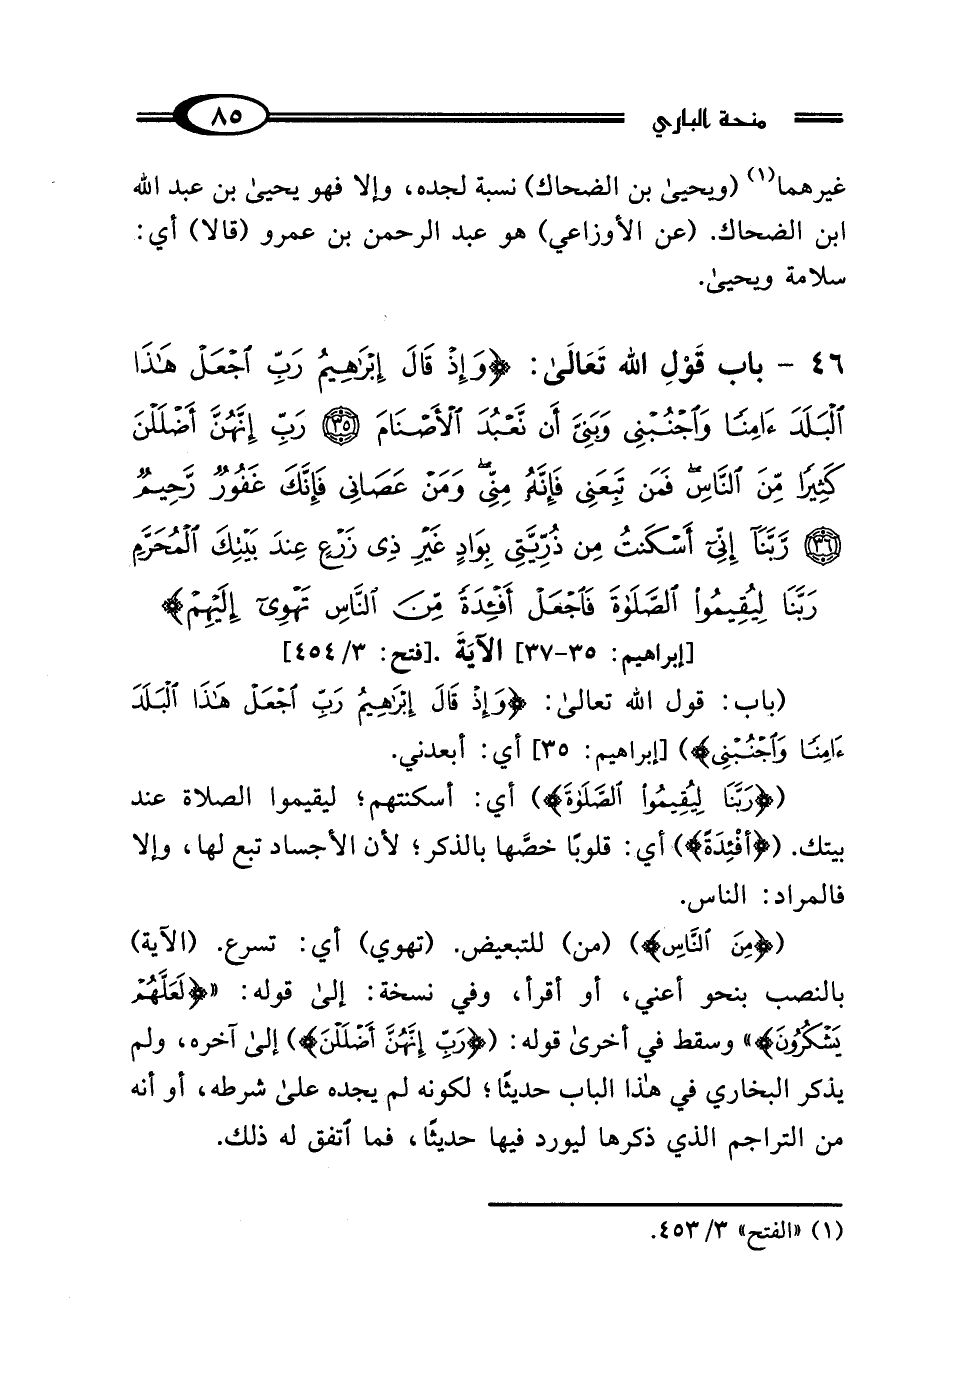 منحة الباري ٨٥
غيرهما(١) (ويحيىٰ بن الضحاك) نسبة لجده، وإلا فهو يحيىٰ بن عبد الله
ابن الضحاك. (عن الأوزاعي) هو عبد الرحمن بن عمرو (قالا) أي:
سلامة ويحيىٰ.
٤٦ - باب قَوْلِ الله تَعَالَىٰ: ﴿وَإِذْ قَالَ إِبْرَٰهِيمُ رَبِّ ٱجْعَلْ هَٰذَا
ٱلْبَلَدَ ءَامِنًا وَٱجْنُبْنِى وَبَنِىَّ أَن نَّعْبُدَ ٱلْأَصْنَامَ ﴿٣٥﴾ رَبِّ إِنَّهُنَّ أَضْلَلْنَ
كَثِيرًا مِّنَ ٱلنَّاسِ ۖ فَمَن تَبِعَنِى فَإِنَّهُۥ مِنِّى ۖ وَمَنْ عَصَانِى فَإِنَّكَ غَفُورٌ رَّحِيمٌ
﴿٣٦﴾ رَّبَّنَآ إِنِّىٓ أَسْكَنتُ مِن ذُرِّيَّتِى بِوَادٍ غَيْرِ ذِى زَرْعٍ عِندَ بَيْتِكَ ٱلْمُحَرَّمِ
رَبَّنَا لِيُقِيمُوا۟ ٱلصَّلَوٰةَ فَٱجْعَلْ أَفْـِٔدَةً مِّنَ ٱلنَّاسِ تَهْوِىٓ إِلَيْهِمْ﴾
[إبراهيم: ٣٥-٣٧] الآيَةَ .[فتح: ٣/ ٤٥٤]
(باب: قول الله تعالىٰ: ﴿وَإِذْ قَالَ إِبْرَٰهِيمُ رَبِّ ٱجْعَلْ هَٰذَا ٱلْبَلَدَ
ءَامِنًا وَٱجْنُبْنِى﴾) [إبراهيم: ٣٥] أي: أبعدني.
(﴿رَبَّنَا لِيُقِيمُوا۟ ٱلصَّلَوٰةَ﴾) أي: أسكنتهم؛ ليقيموا الصلاة عند
بيتك. (﴿أَفْئِدَةً﴾) أي: قلوبًا خصَّها بالذكر؛ لأن الأجساد تبع لها، وإلا
فالمراد: الناس.
(﴿مِنَ ٱلنَّاسِ﴾) (من) للتبعيض. (تهوي) أي: تسرع. (الآية)
بالنصب بنحو أعني، أو أقرأ، وفي نسخة: إلىٰ قوله: «﴿لَعَلَّهُمْ
يَشْكُرُونَ﴾» وسقط في أخرىٰ قوله: (﴿رَبِّ إِنَّهُنَّ أَضْلَلْنَ﴾) إلىٰ آخره، ولم
يذكر البخاري في هٰذا الباب حديثًا؛ لكونه لم يجده علىٰ شرطه، أو أنه
من التراجم الذي ذكرها ليورد فيها حديثًا، فما ٱتفق له ذلك.
(١) «الفتح» ٣/ ٤٥٣.